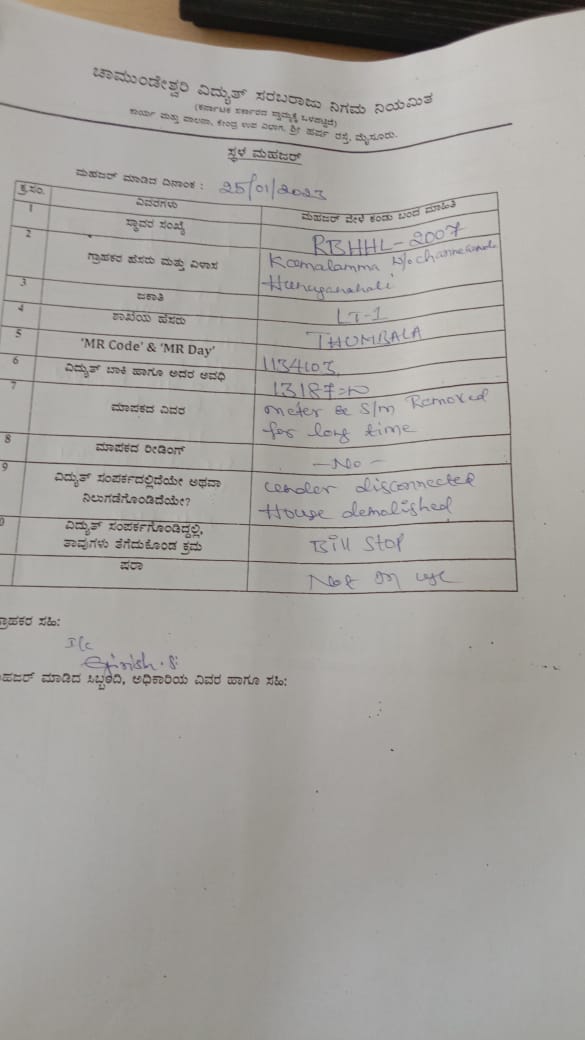 ಚಾಮುಂಡೇಶ್ವರಿ ವಿದ್ಯುತ್ ಸರಬರಾಜು ನಿಗಮ ನಿಯಮಿತ
(ಕರ್ನಾಟಕ ಸರ್ಕಾರದ ಸ್ವಾಮ್ಯಕ್ಕೆ ಒಳಪಟ್ಟಿದೆ)
ಕಾರ್ಯ ಮತ್ತು ಪಾಲನಾ, ಕೇಂದ್ರ ಉಪ ವಿಭಾಗ, ಶ್ರೀ ಹರ್ಷ ರಸ್ತೆ, ಮೈಸೂರು.
ಸ್ಥಳ ಮಹಜರ್
ಮಹಜರ್ ಮಾಡಿದ ದಿನಾಂಕ : 25/01/2023
ಕ್ರ.ಸಂ. ವಿವರಗಳು ಮಹಜರ್ ವೇಳೆ ಕಂಡು ಬಂದ ಮಾಹಿತಿ
1 ಸ್ಥಾವರ ಸಂಖ್ಯೆ RBHHL-2007
2 ಗ್ರಾಹಕರ ಹೆಸರು ಮತ್ತು ವಿಳಾಸ Kamalamma
3 ಜಕಾತಿ LT-1
4 ಶಾಖೆಯ ಹೆಸರು THUMBALA
5 'MR Code' & 'MR Day' 1134103
6 ವಿದ್ಯುತ್ ಬಾಕಿ ಹಾಗೂ ಅದರ ಅವಧಿ 13187=
7 ಮಾಪಕದ ವಿವರ meter & S/m Removed
for long time
8 ಮಾಪಕದ ರೀಡಿಂಗ್ -No-
9 ವಿದ್ಯುತ್ ಸಂಪರ್ಕದಲ್ಲಿದೆಯೇ ಅಥವಾ disconnected
ನಿಲುಗಡೆಗೊಂಡಿದೆಯೇ? House demolished
ವಿದ್ಯುತ್ ಸಂಪರ್ಕಗೊಂಡಿದ್ದಲ್ಲಿ, Bill Stop
ತಾವುಗಳು ತೆಗೆದುಕೊಂಡ ಕ್ರಮ
ಷರಾ Not in use
ಗ್ರಾಹಕರ ಸಹಿ:
Girish.S
ಮಹಜರ್ ಮಾಡಿದ ಸಿಬ್ಬಂದಿ, ಅಧಿಕಾರಿಯ ವಿವರ ಹಾಗೂ ಸಹಿ: